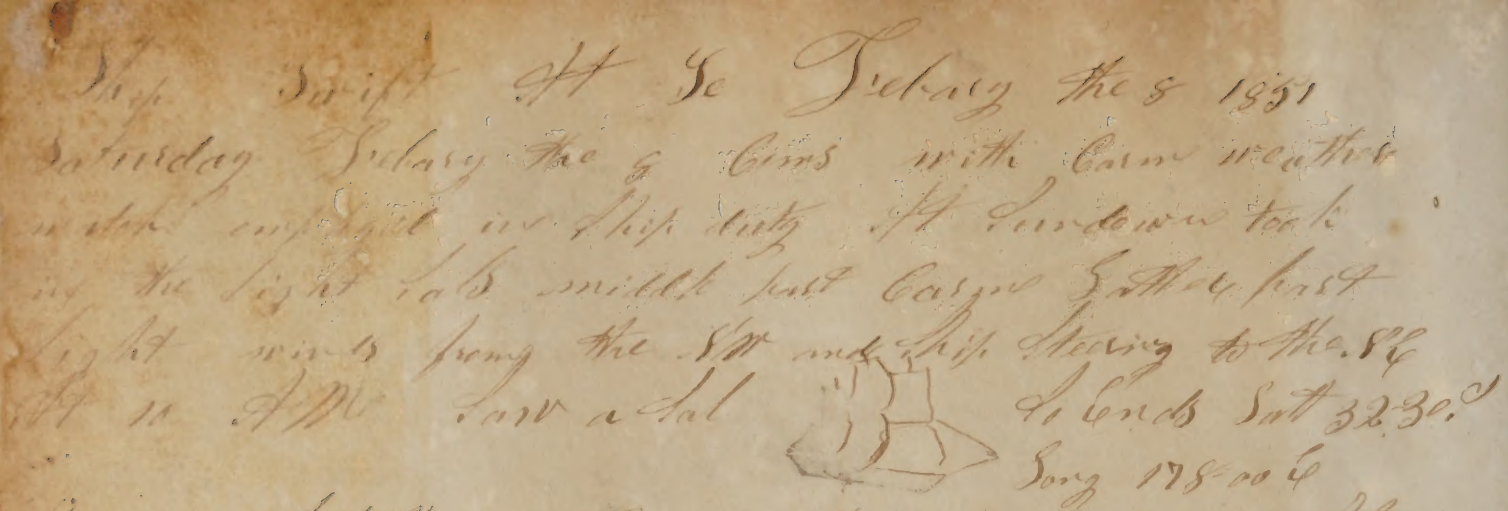 Ship Swift At Se Febary the 8 1851
Saturday Febary the 8 Cims with Carm weather
watch employed in Ship duty At Sundown took
in the Light Sals middle part Carm Latter part
Light winds frong the NW and Ship Steering to the SE
At 10 AM Saw a Sal So Ends Lat 32.30.S
Long 178-00 E